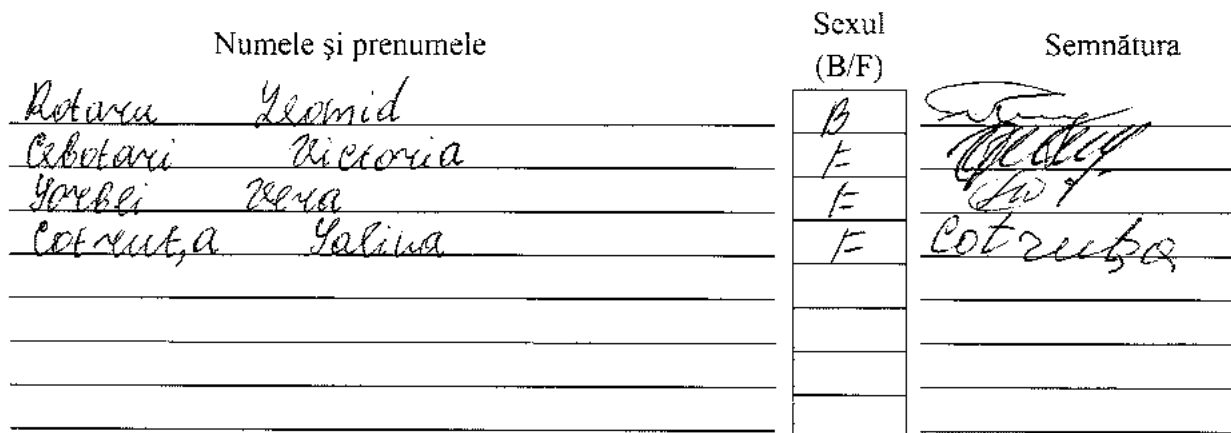 Numele și prenumele Sexul (B/F) Semnătura
Rotaru Leonid B
Cebotari Victoria F
Vera F
Cotruț,a Galina F Cotruța